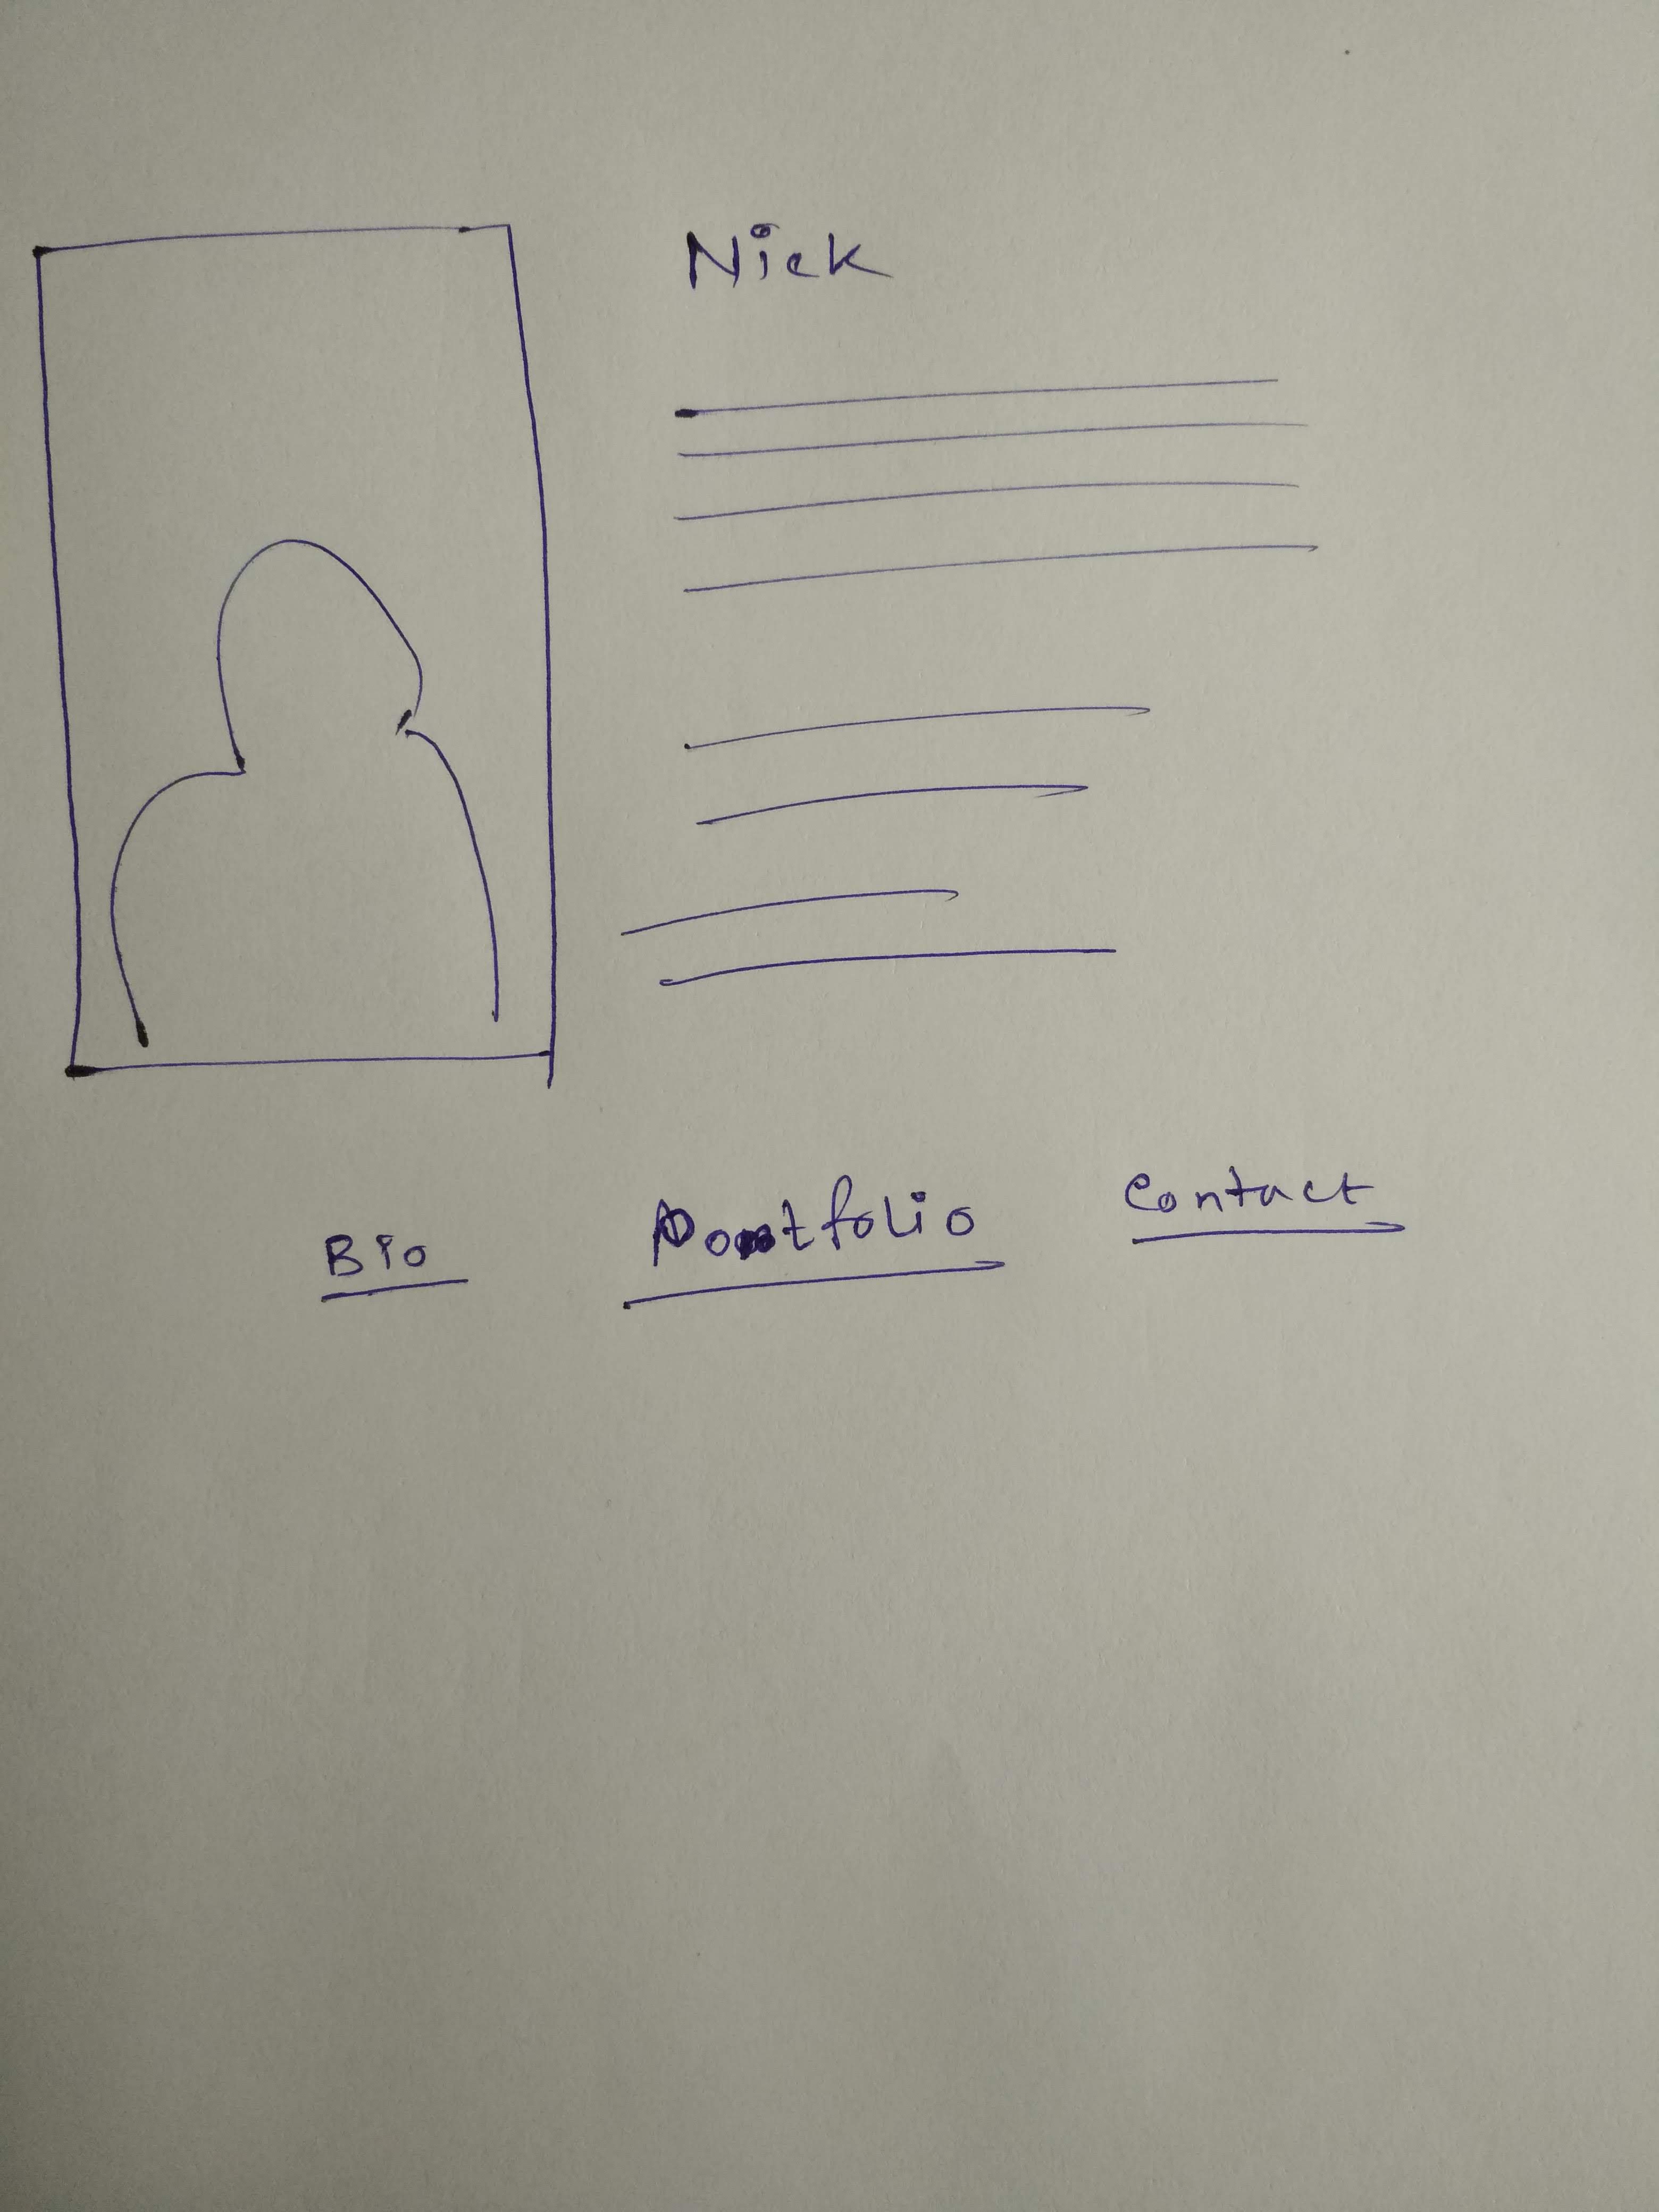 Nick
Bio Portfolio Contact